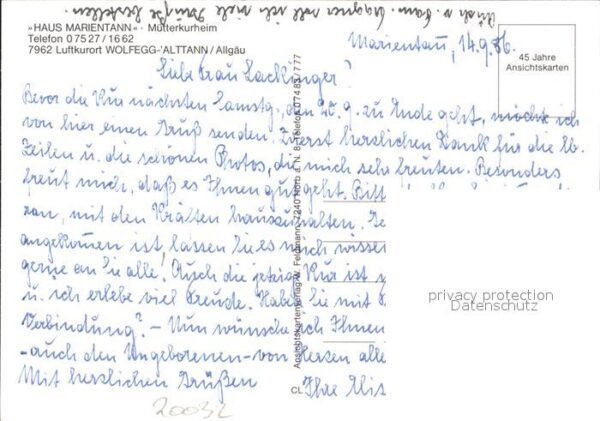 Auch v. Fam. Wagner soll ich viele Grüße bestellen.
»HAUS MARIENTANN« · Mütterkurheim
Telefon 0 75 27 / 16 62
7962 Luftkurort WOLFEGG-ALTTANN / Allgäu
Marientann, 14.9.86.
45 Jahre
Ansichtskarten
Liebe Frau Lackinger!
Bevor die Kur nächsten Samstg, den 20.9. zu Ende geht, möchte ich
von hier einen Gruß senden. Zuerst herzlichen Dank für die lb.
Zeilen u. die schönen Photos, die mich sehr freuten. Besonders
freut mich, daß es Ihnen gut geht. Bitt
ran, mit den Kräften hauszuhalten.
angekommen ist, lassen Sie es mich wissen
gerne an Sie alle! Auch die jetzige Kur ist
u. ich erlebe viel Freude. Haben Sie mit
Verbindung? - Nun wünsche ich Ihnen
- auch den Ungeborenen - von Herzen alle
Mit herzlichen Grüßen
Ihre Elis
Ansichtskartenverlag W. Feldmann, 7240 Horb a. N. 8, Telefon 07483/777
privacy protection
Datenschutz
CL
20032